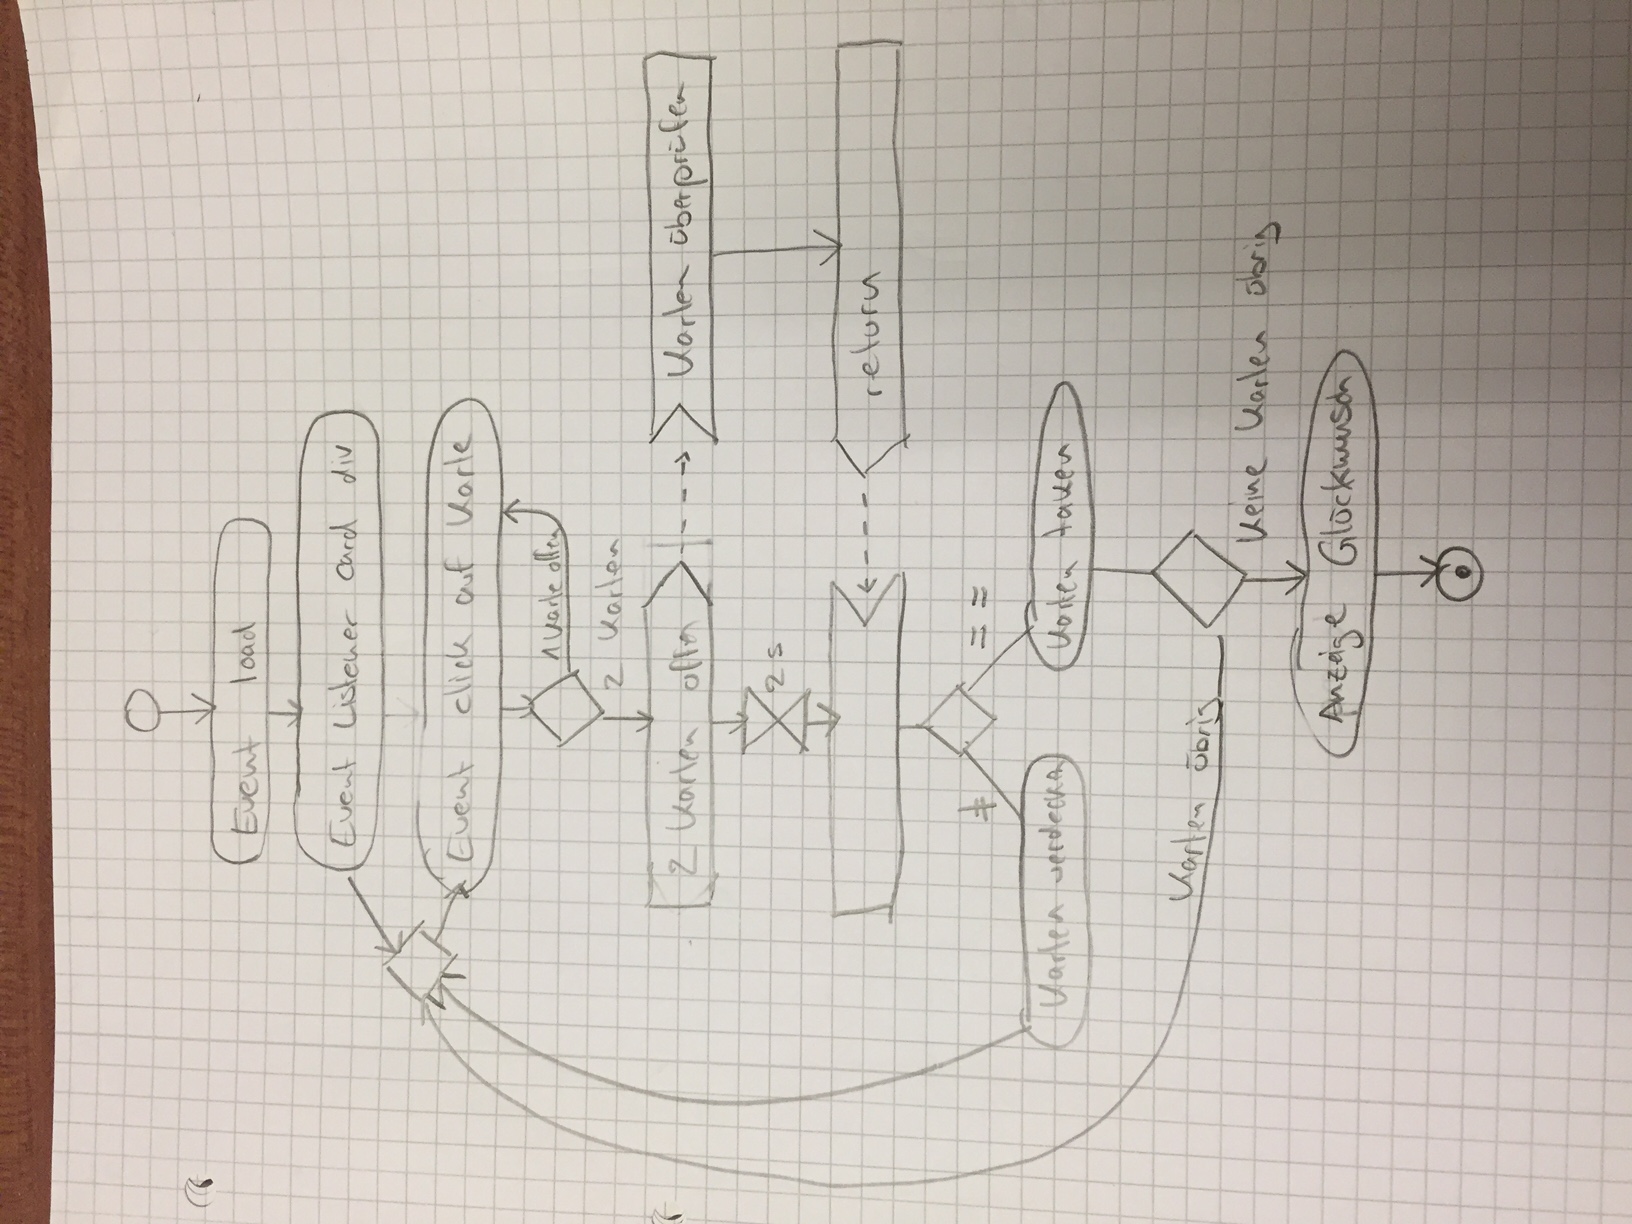 Event load
Event Listener card div
Event click auf Karte
1 Karte offen
2 Karten
2 Karten offen
Karten überprüfen
2 s
return
≠
==
Karten verdecken
Karten taken
Karten übrig
Keine Karten übrig
Anzeige Glückwunsch